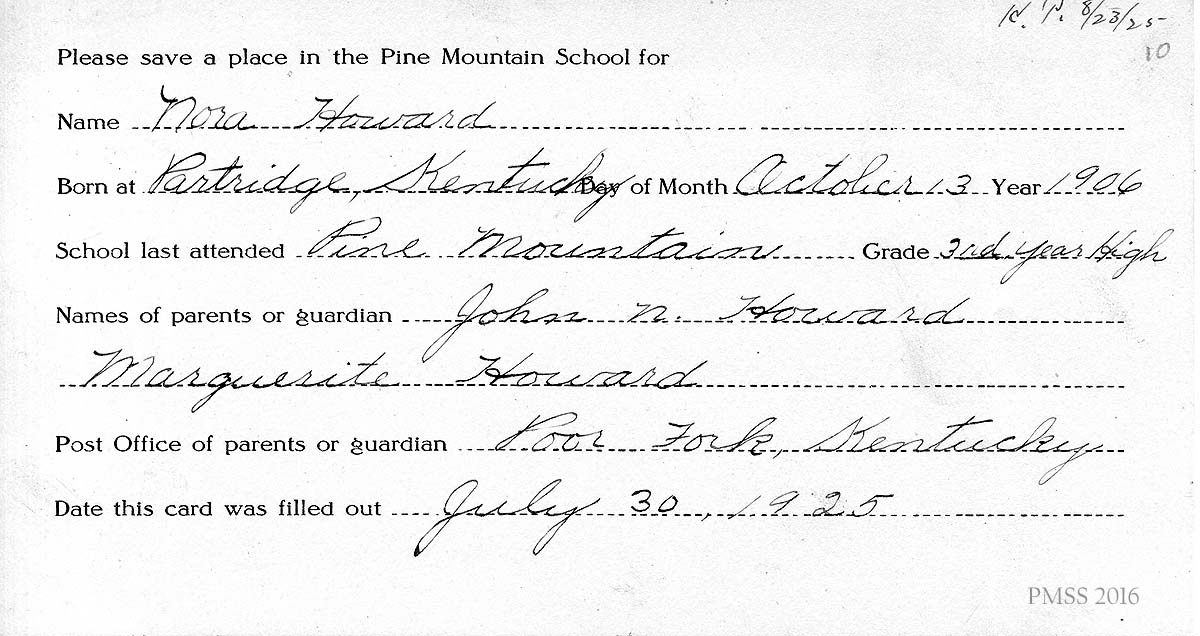 K. P. 8/23/25
10
Please save a place in the Pine Mountain School for
Name Nora Howard
Born at Partridge, Kentucky Day of Month October 13 Year 1906
School last attended Pine Mountain Grade 3rd year High
Names of parents or guardian John N. Howard
Marguerite Howard
Post Office of parents or guardian Poor Fork, Kentucky
Date this card was filled out July 30, 1925
PMSS 2016